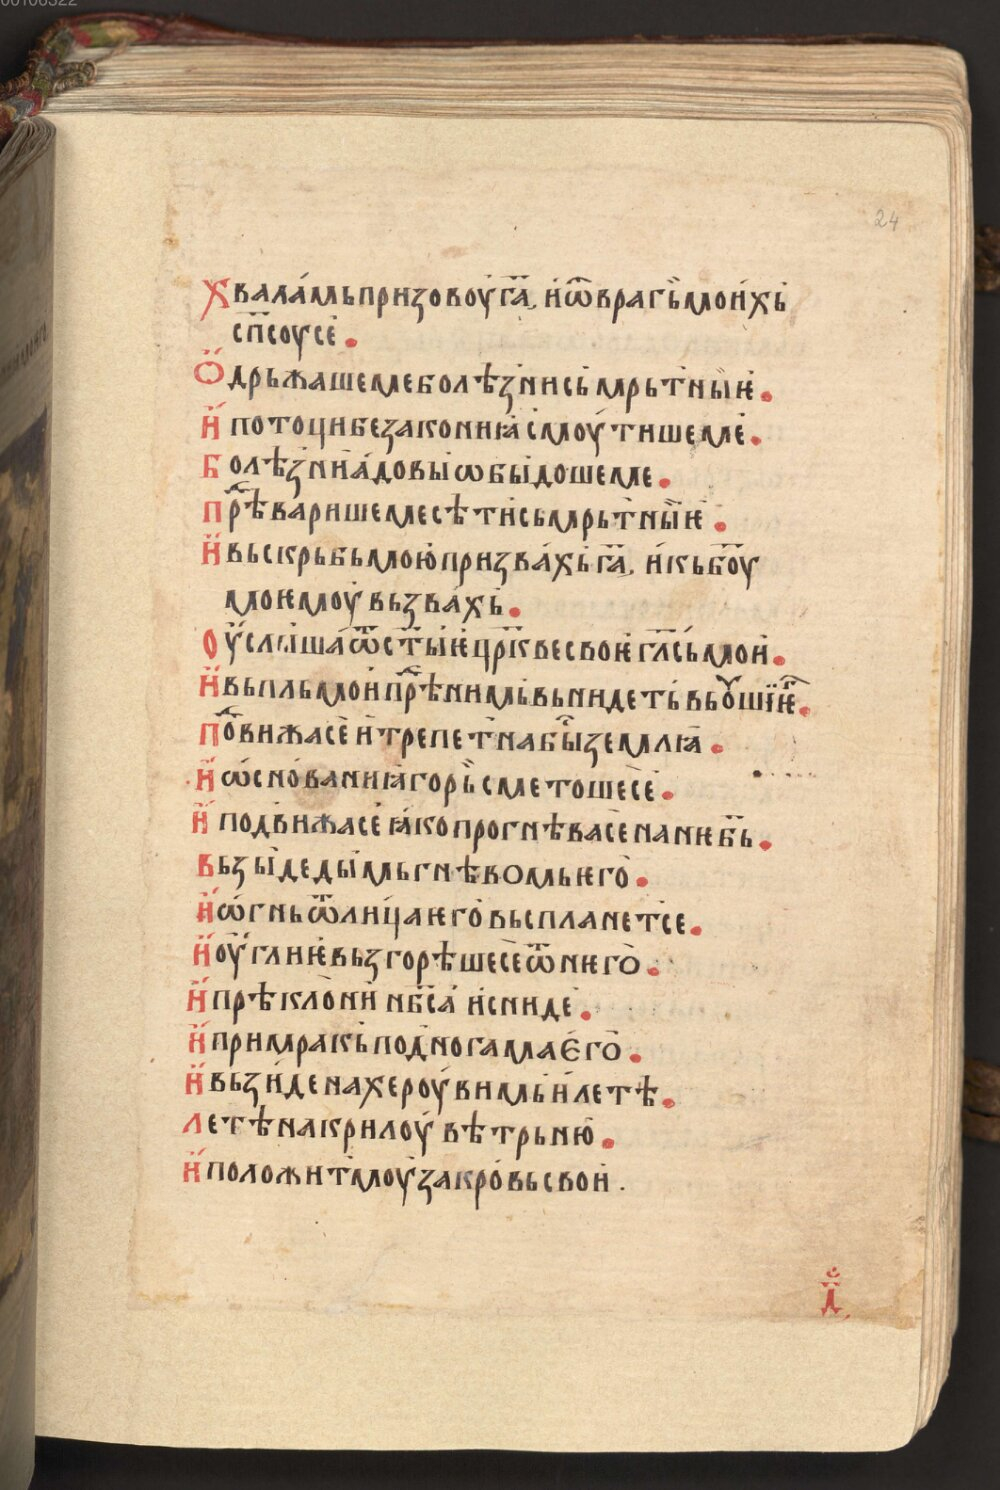 00108322
24
Хвала́мь призовоу́ г҃а, и҆ ѿ врагь̀ мои́хь
сп҃соу се.
Ѻ҆дрьжаше ме болѣзни сьмрьт́ныѥ.
И҆ потоци безакониꙗ́ смоу́тише ме.
Болѣз́ни а́довы ѡбыдоше ме.
Прѣ́варише ме сѣти сьмрьт́ныѥ.
И҆ вь скрьбь мою̀ призва́хь г҃а, и҆ кь б҃оу
моѥмоу̀ вьзва́хь.
Оу҆слы́ша ѿ ст҃ыѥ цр҃кве своѥ гл҃сь мои.
И҆ вьпль мои прѣ́ нимь вьнидеть вь оу҆шїѥ.
По́вижа се и҆ трепет́на бы̀ землꙗ.
И҆ ѡ҆сно́ваниꙗ горь̀ сметоше се.
И҆ подви́жа се ꙗ҆ко прогнѣва се на ни б҃ь.
Вьзы́де дымь гнѣвомь ѥго̀.
И҆ ѡ҆гнь ѿ лица ѥго̀ вьспланет́се.
И҆ оу҆глиѥ вьзгорѣше се ѿ ниѥго̀.
И҆ прѣкло́ни нб҃са̀ и҆ сниде.
И҆ примракь под́ ногама є҆го̀.
И҆ вьзи́де на хероу́вимь и҆ летѣ.
Летѣ на крилоу̀ вѣтрьню̀.
И҆ положи т́моу̀ закро́вь свои.
д҃